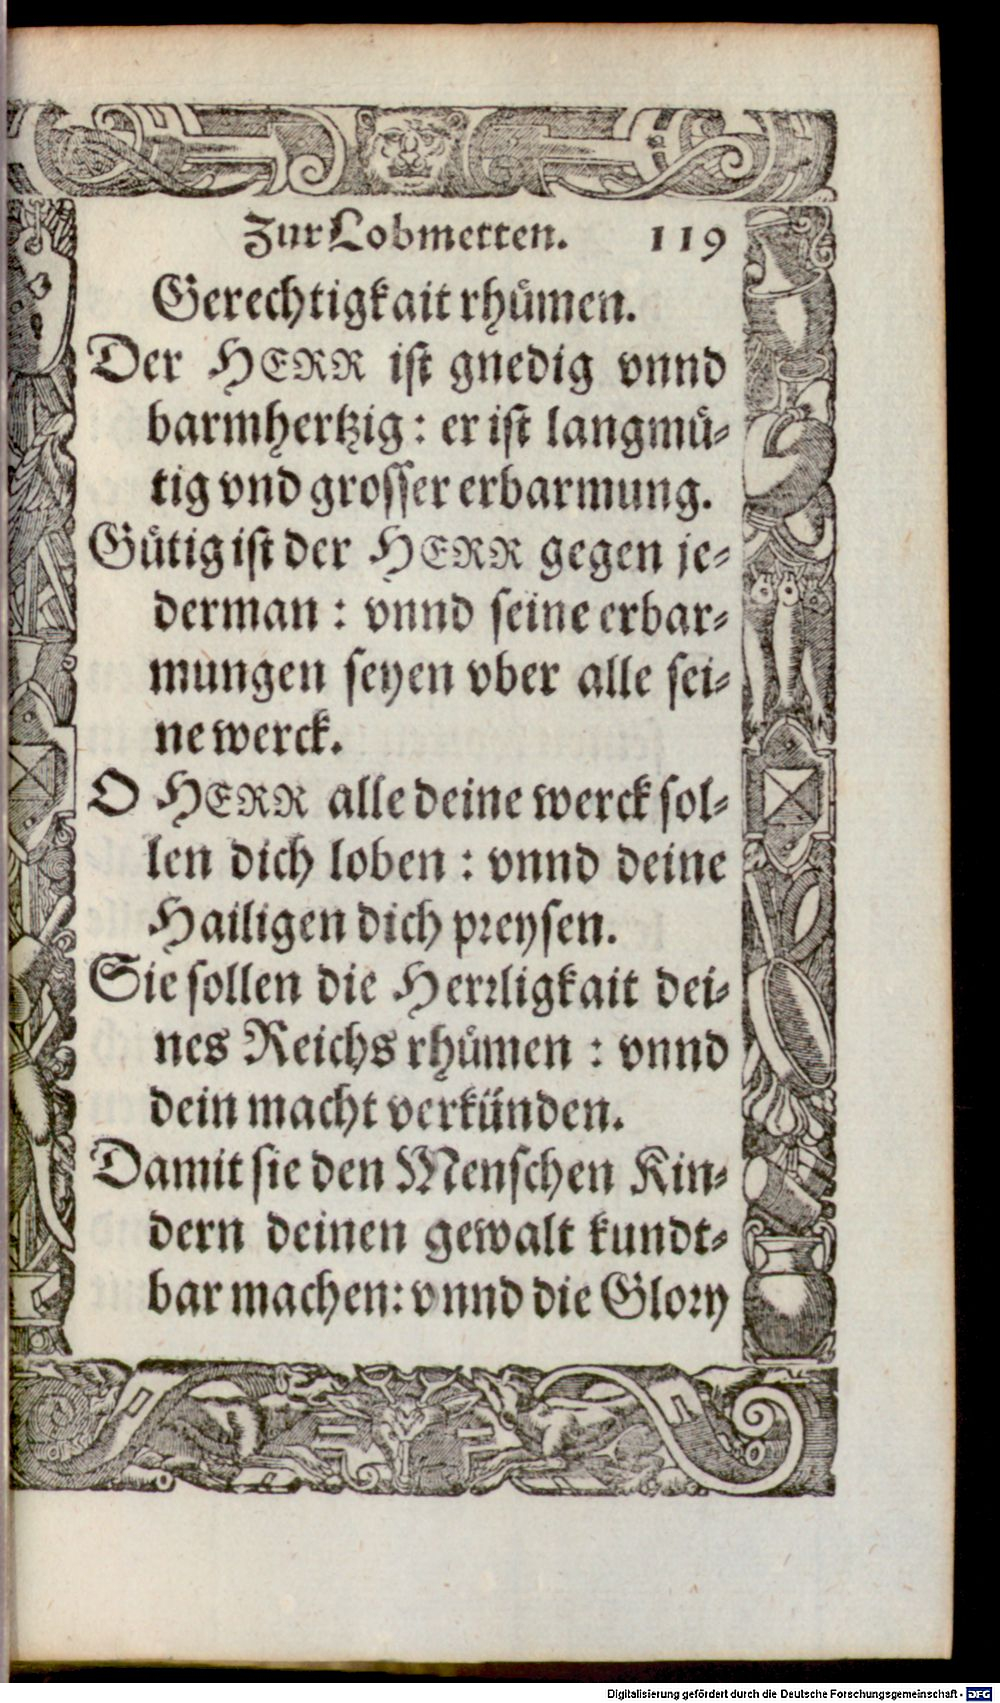 Zur Lobmetten. 119
Gerechtigkait rhuͤmen.
Der HERR ist gnedig vnnd
barmhertzig : er ist langmuͤ-
tig vnd grosser erbarmung.
Guͤtig ist der HERR gegen je-
derman : vnnd seine erbar-
mungen seyen vber alle sei-
ne werck.
O HERR alle deine werck sol-
len dich loben : vnnd deine
Hailigen dich preysen.
Sie sollen die Herrligkait dei-
nes Reichs rhuͤmen : vnnd
dein macht verkünden.
Damit sie den Menschen Kin-
dern deinen gewalt kundt-
bar machen: vnnd die Glory
Digitalisierung gefördert durch die Deutsche Forschungsgemeinschaft - DFG